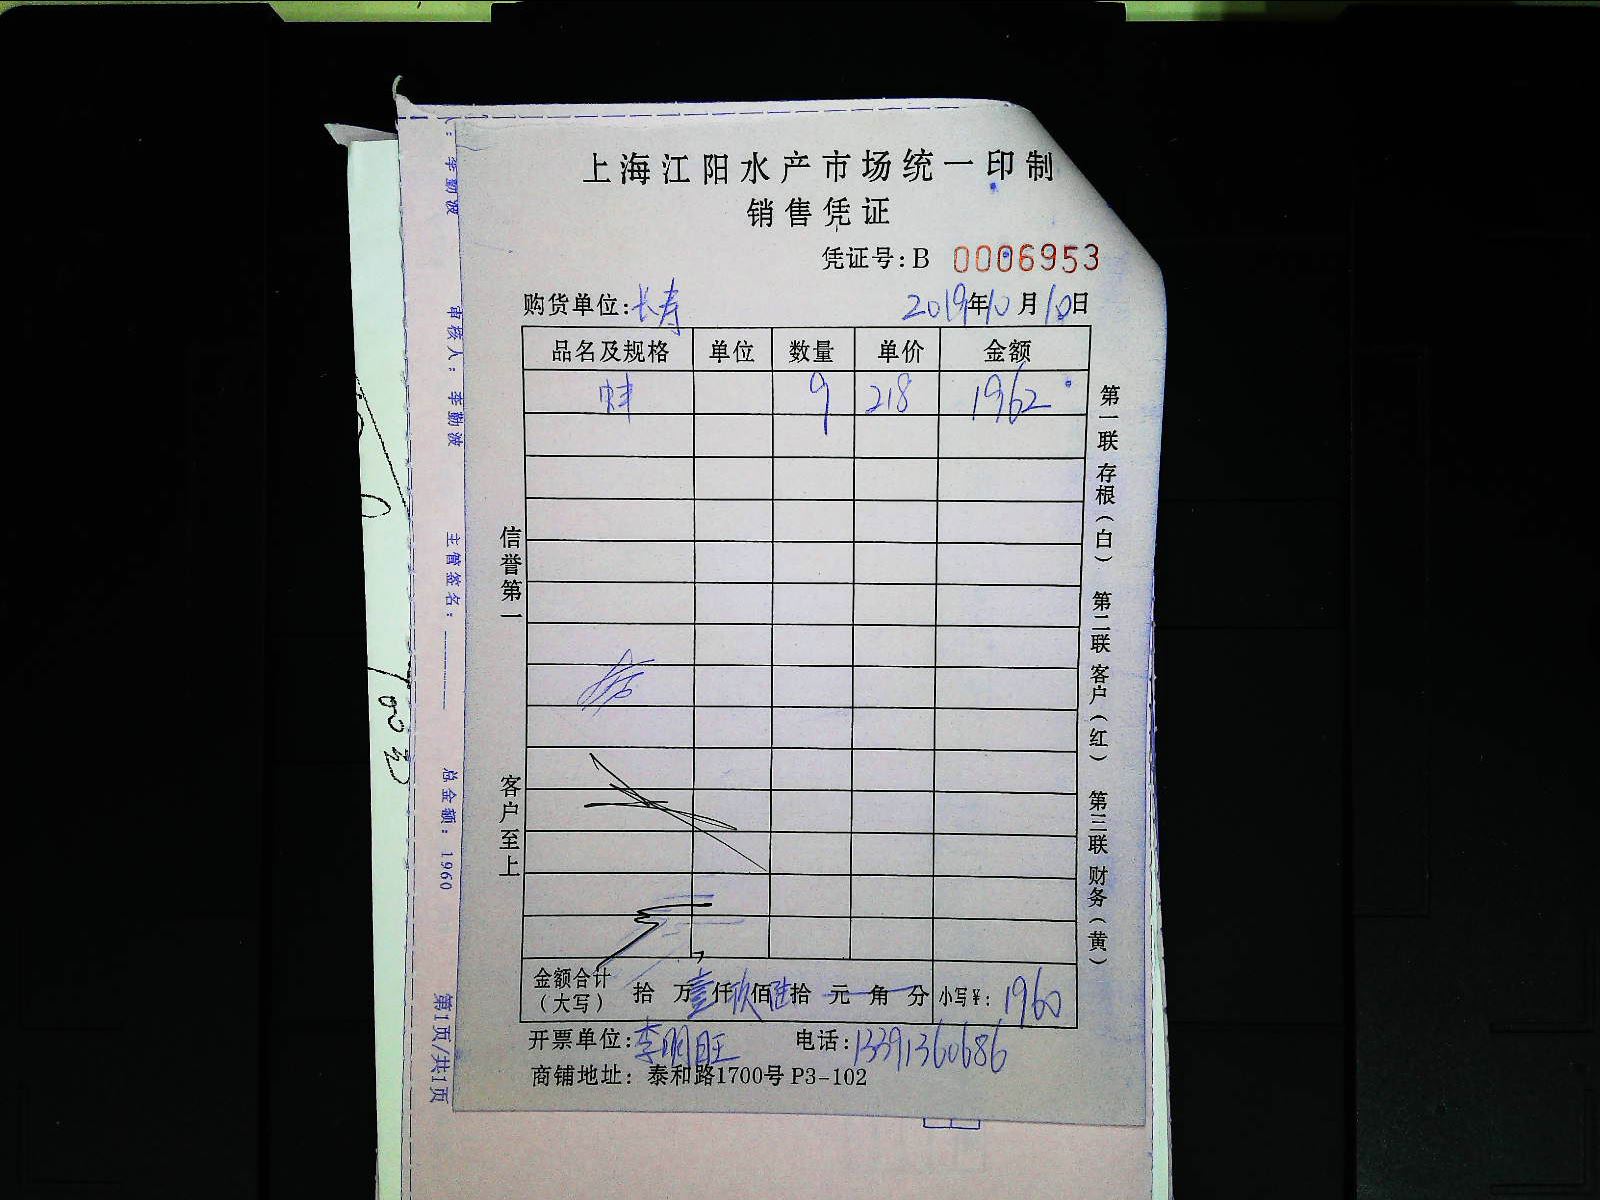 上海江阳水产市场统一印制
销售凭证
凭证号：B 0006953
购货单位：长寿 2019年10月10日
品名及规格 单位 数量 单价 金额
9 218 1962
信誉第一
客户至上
第一联 存根（白） 第二联 客户（红） 第三联 财务（黄）
金额合计（大写） 拾 万壹仟玖佰陆拾 元 角 分 小写¥：1960
开票单位：李明旺 电话：13391360686
商铺地址：泰和路1700号 P3-102
李勤波
审核人：李勤波
主管签名：________
总金额：1960
第1页/共1页